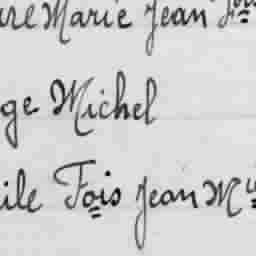 Marie Jean Fois
ge Michel
ile Fois Jean M